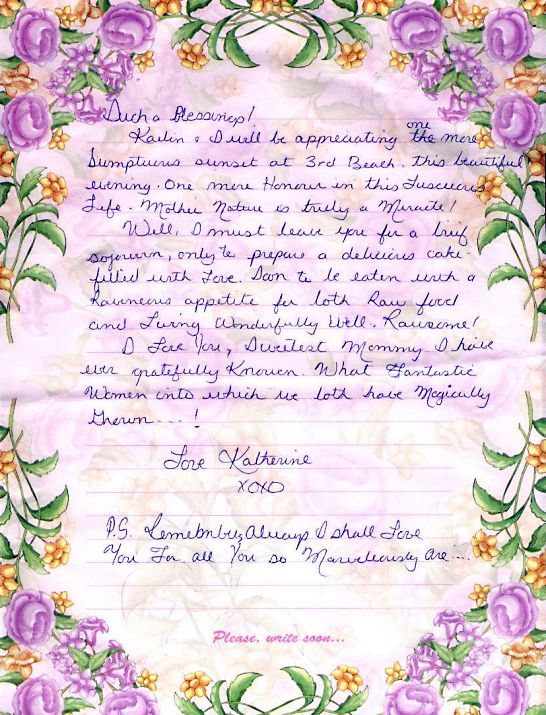 Such a Blessings!
Karlin & I will be appreciating one the more
sumptuous sunset at 3rd Beach. this beautiful
evening. One more Honour in this Luscious
Life. Mother Nature is truly a Miracle!
Well, I must leave you for a brief
sojourn, only to prepare a delicious cake-
filled with Love. Soon to be eaten with a
Ravenous appetite for both Raw food
and Living Wonderfully Well. Rawsome!
I Love You, Sweetest Mommy I have
ever gratefully Known. What Fantastic
Women into which we both have Magically
Grown....!
Love Katherine
XOXO
P.S. Always I shall Love
You For all You so Marvellously Are....
Please, write soon...